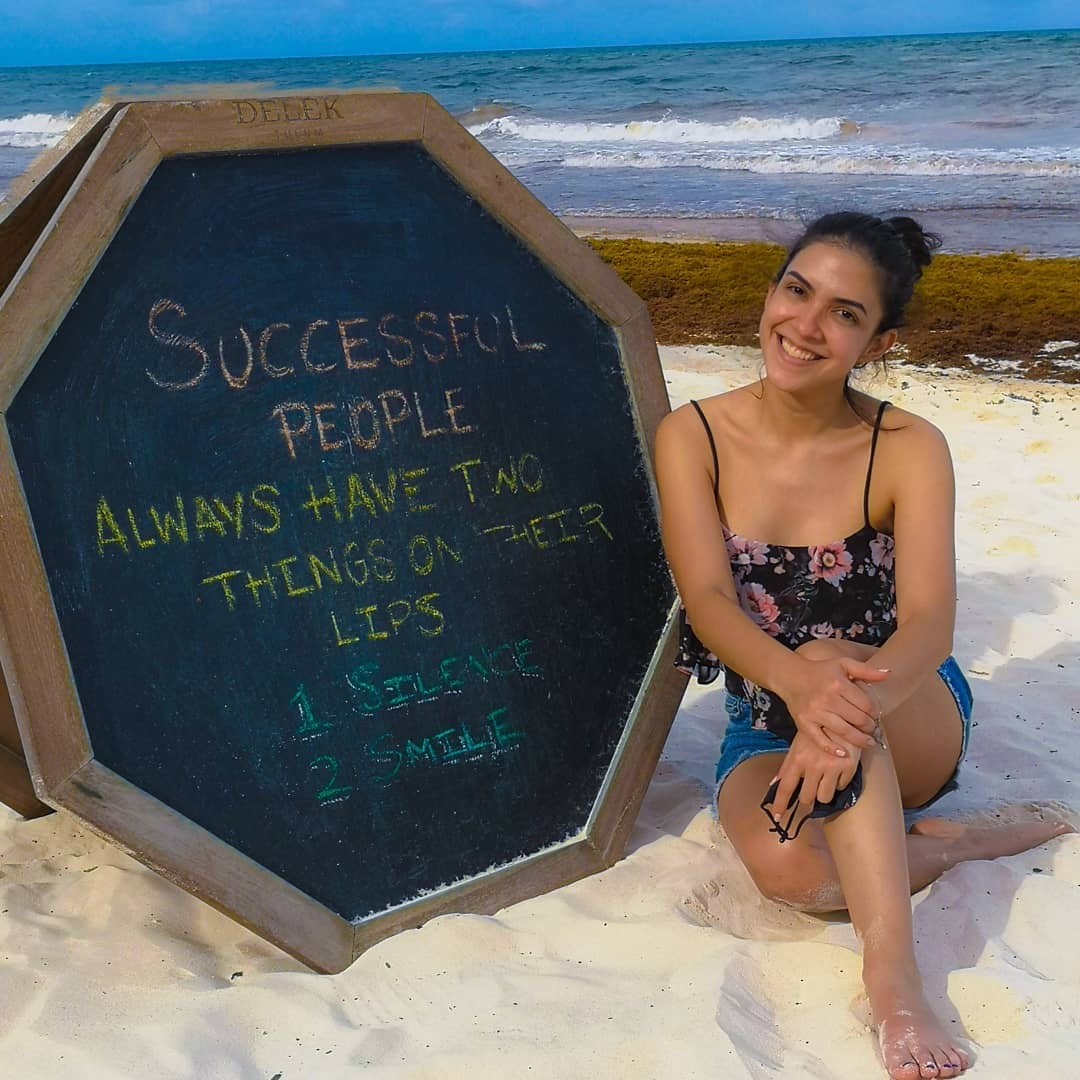 DELEK
TULUM
SUCCESSFUL
PEOPLE
ALWAYS HAVE TWO
THINGS ON THEIR
LIPS
1 SILENCE
2 SMILE